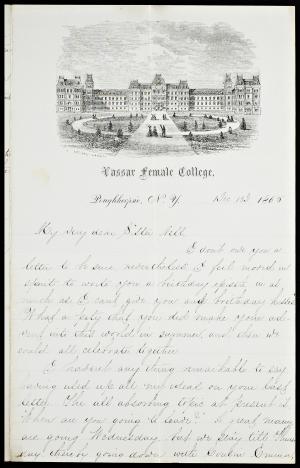 Vassar Female College.
Poughkeepsie, N.Y. Dec 1865
My very dear Sister Nell
I don't owe you a
letter to be sure, nevertheless, I feel moved in
spirit to write you a birthday epistle, in as
much as I can't give you any birthday kisses
What a pity that you did make your ad-
vent into this world in summer, and then we
could all celebrate together
I havent any thing remarkable to say
having used up all my ideas on your last
letter. The all absorbing topic at present is
"When are you going to leave?" A great many
are going Wednesday but we stay till Thurs
day then going down with Cousin Emma,